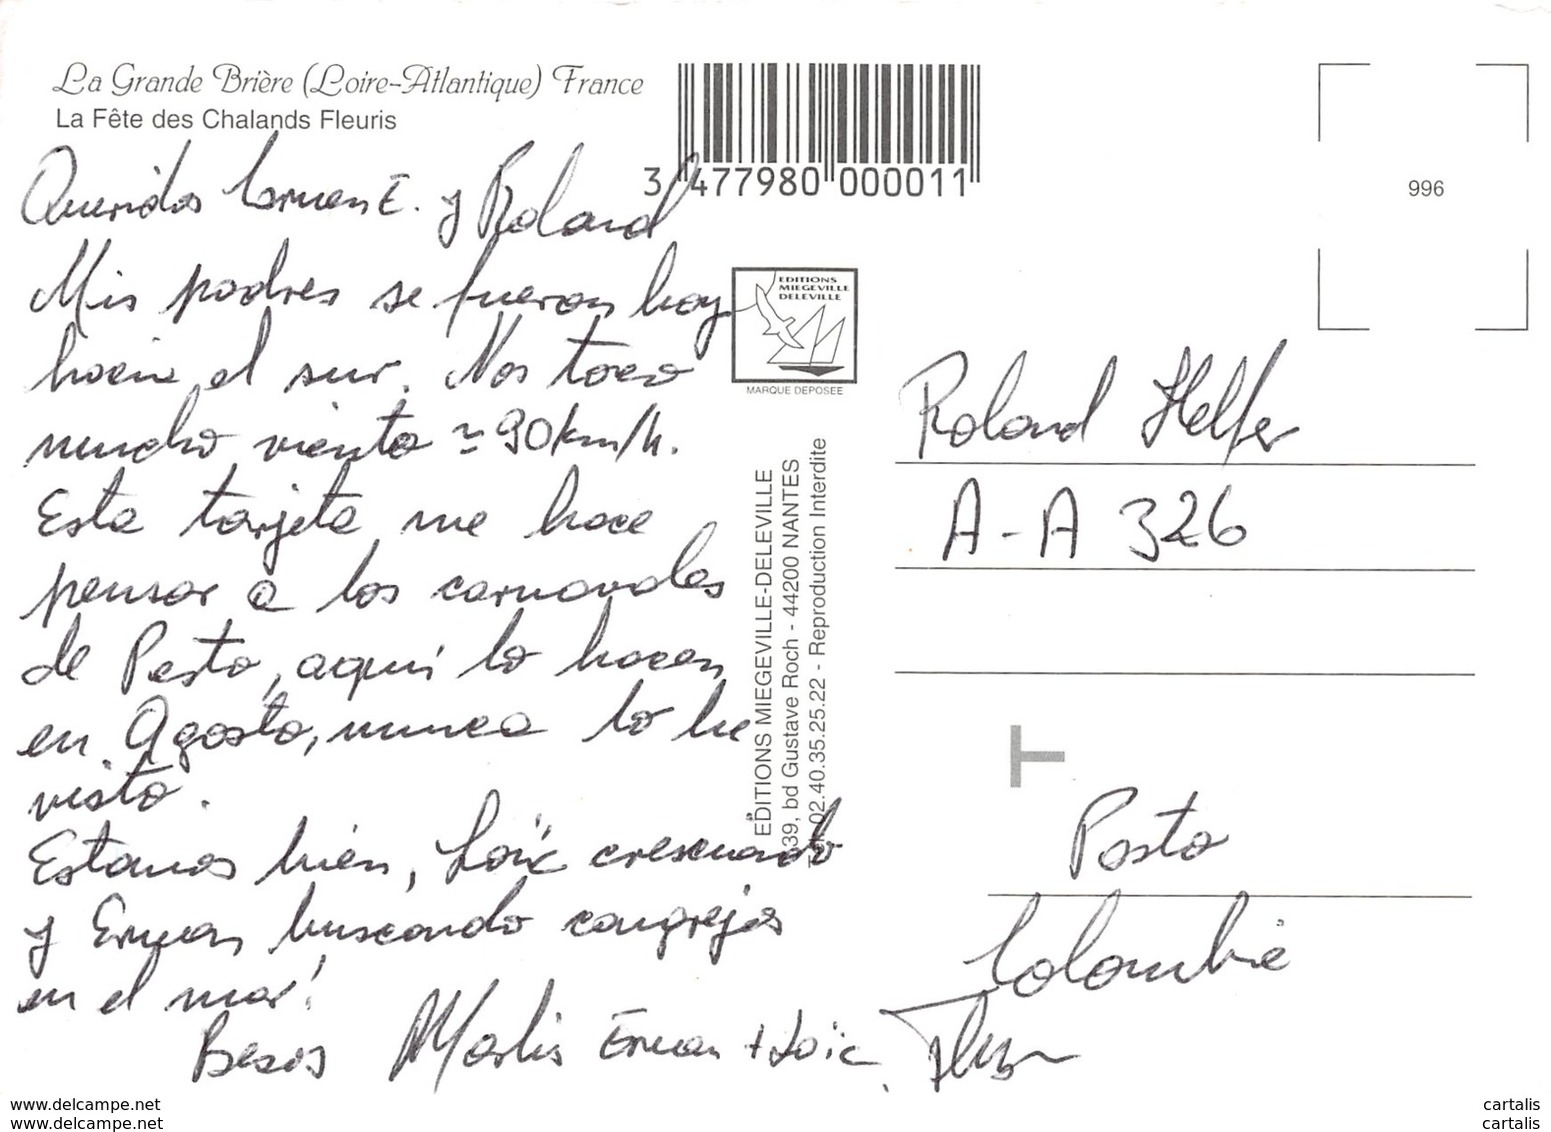 La Grande Brière (Loire-Atlantique) France
La Fête des Chalands Fleuris
3 477980 000011
996
Queridos Carmen E. y Roland
Mis padres se fueron hoy
hacia el sur. Nos toco
mucho viento ≃ 90 km/h.
Esta tarjeta me hace
pensar a los carnavales
de Pasto, aqui lo hacen
en Agosto, nunca lo he
visto.
Estamos bien, Loïc cresciendo
y Erwan buscando cangrejos
en el mar!
Besos Marlis Erwan + Loïc
EDITIONS
MIEGEVILLE
DELEVILLE
MARQUE DEPOSEE
EDITIONS MIEGEVILLE-DELEVILLE
39, bd Gustave Roch - 44200 NANTES
Tél. 02.40.35.25.22 - Reproduction Interdite
Roland Helfer
A-A 326
T
Pasto
Colombie
www.delcampe.net
www.delcampe.net
cartalis
cartalis